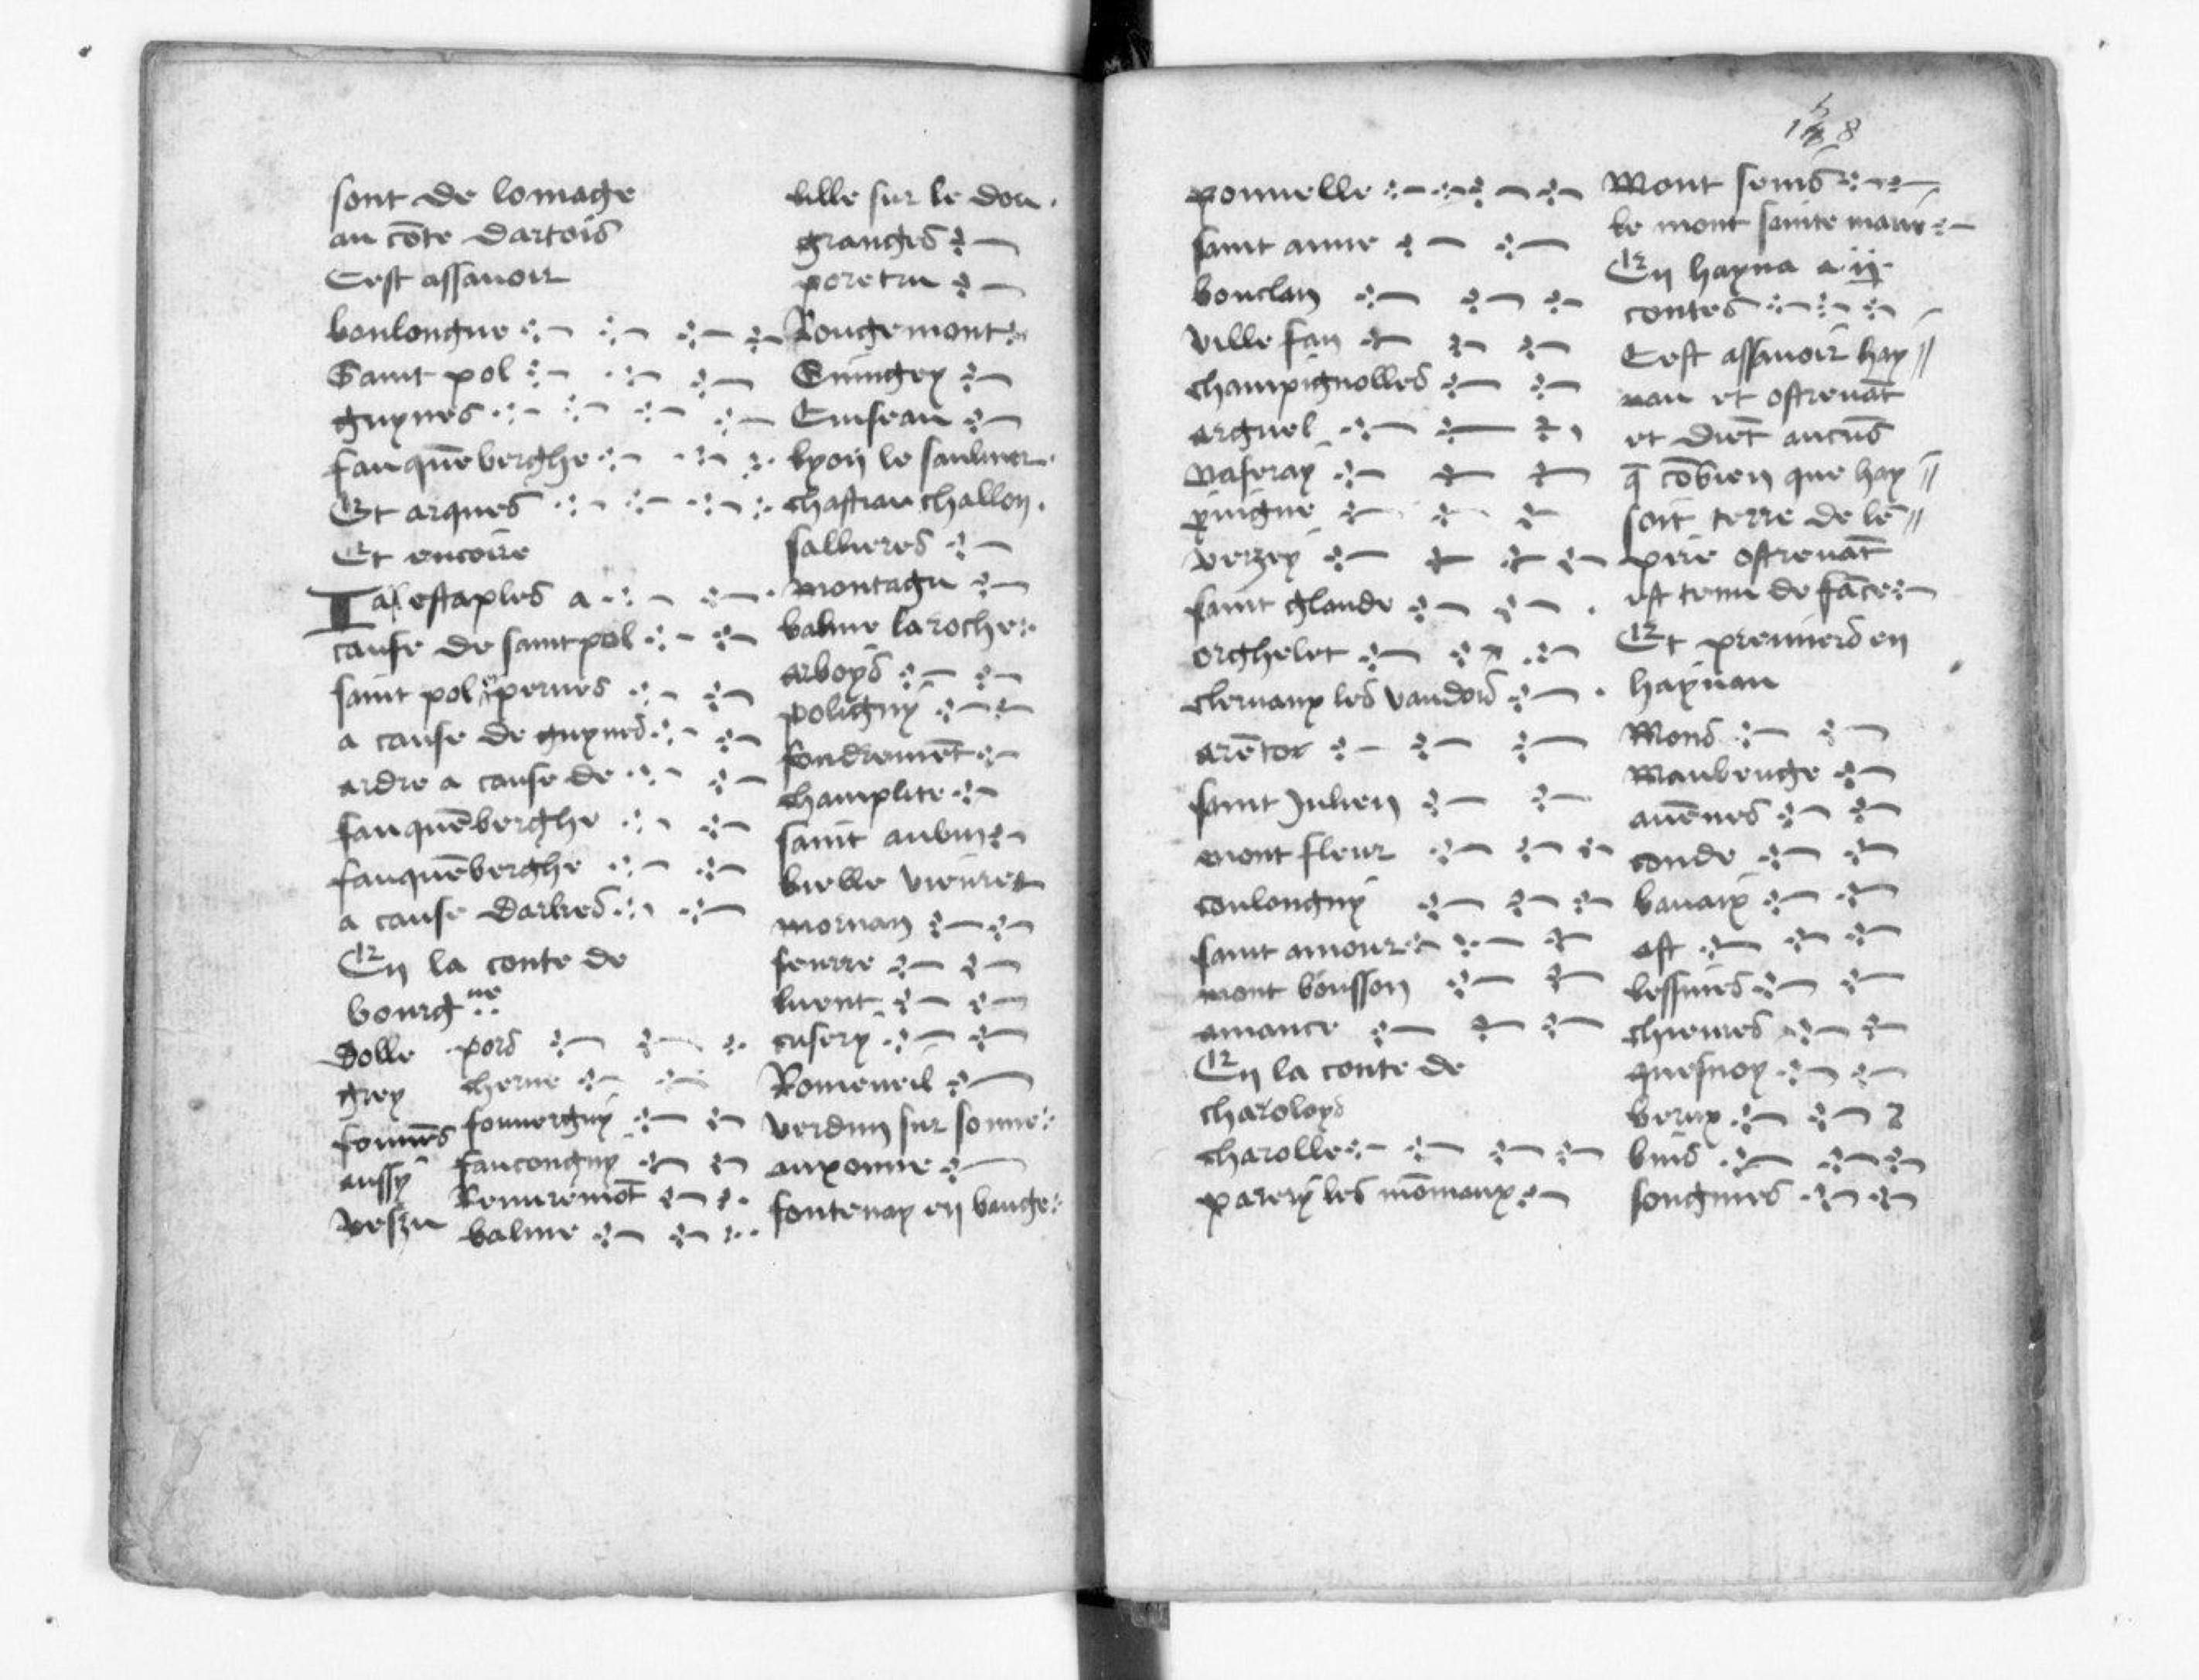 sont de lomage
au cōte dartois
Cest assauoir
boulongne
Saint pol
guynes
fauquēberghe
Et arques
Et encoire
Tal estaples a
cause de saint pol
saint pol pernes
a cause de guynes
ardre a cause de
fauquēberghe
fauquēberghe
a cause darkes
En la conte de
bourgne
Dolle
grey
aussy
pors
cherne
fouuergny
faucongny
Remiremōt
balme
lille sur le dou
granges
Rougemont
Quingey
Cuiseau
lyon le saulnier
chastiau challon
sallieres
montagu
balme la roche
arboys
poligny
fondremēt
champlite
saint aubin
mornay
feurre
luent
cusery
Romeneil
verdun sur sonne
auxonne
fontenay en bauge
148
ponnelle
saint anne
bouclan
ville fan
champignolles
arguel
vaseray
verzey
saint glaude
orghelet
cleruaux les vaudois
arētor
saint Julien
mont fleur
coulongny
saint amour
mont bousson
amance
En la conte de
charoloys
charolle
parery les mōmaux
Mont senis
le mont sainte marie
En hayna a .ij.
contes
Cest assauoir hay
nau et ostreuāt
et diēt aucūs
q̄ cōbien que hay
soit terre de lē
pire ostreuāt
est tenu de frāce
Et premiers en
haynau
Mons
Maubeuge
auēnes
conde
bauaix
ast
lessines
chieures
quesnoy
leuze
bins
songnies